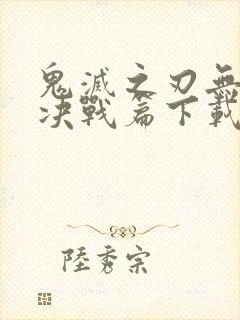 鬼滅之刃無
決戰篇下載
陸秀宗